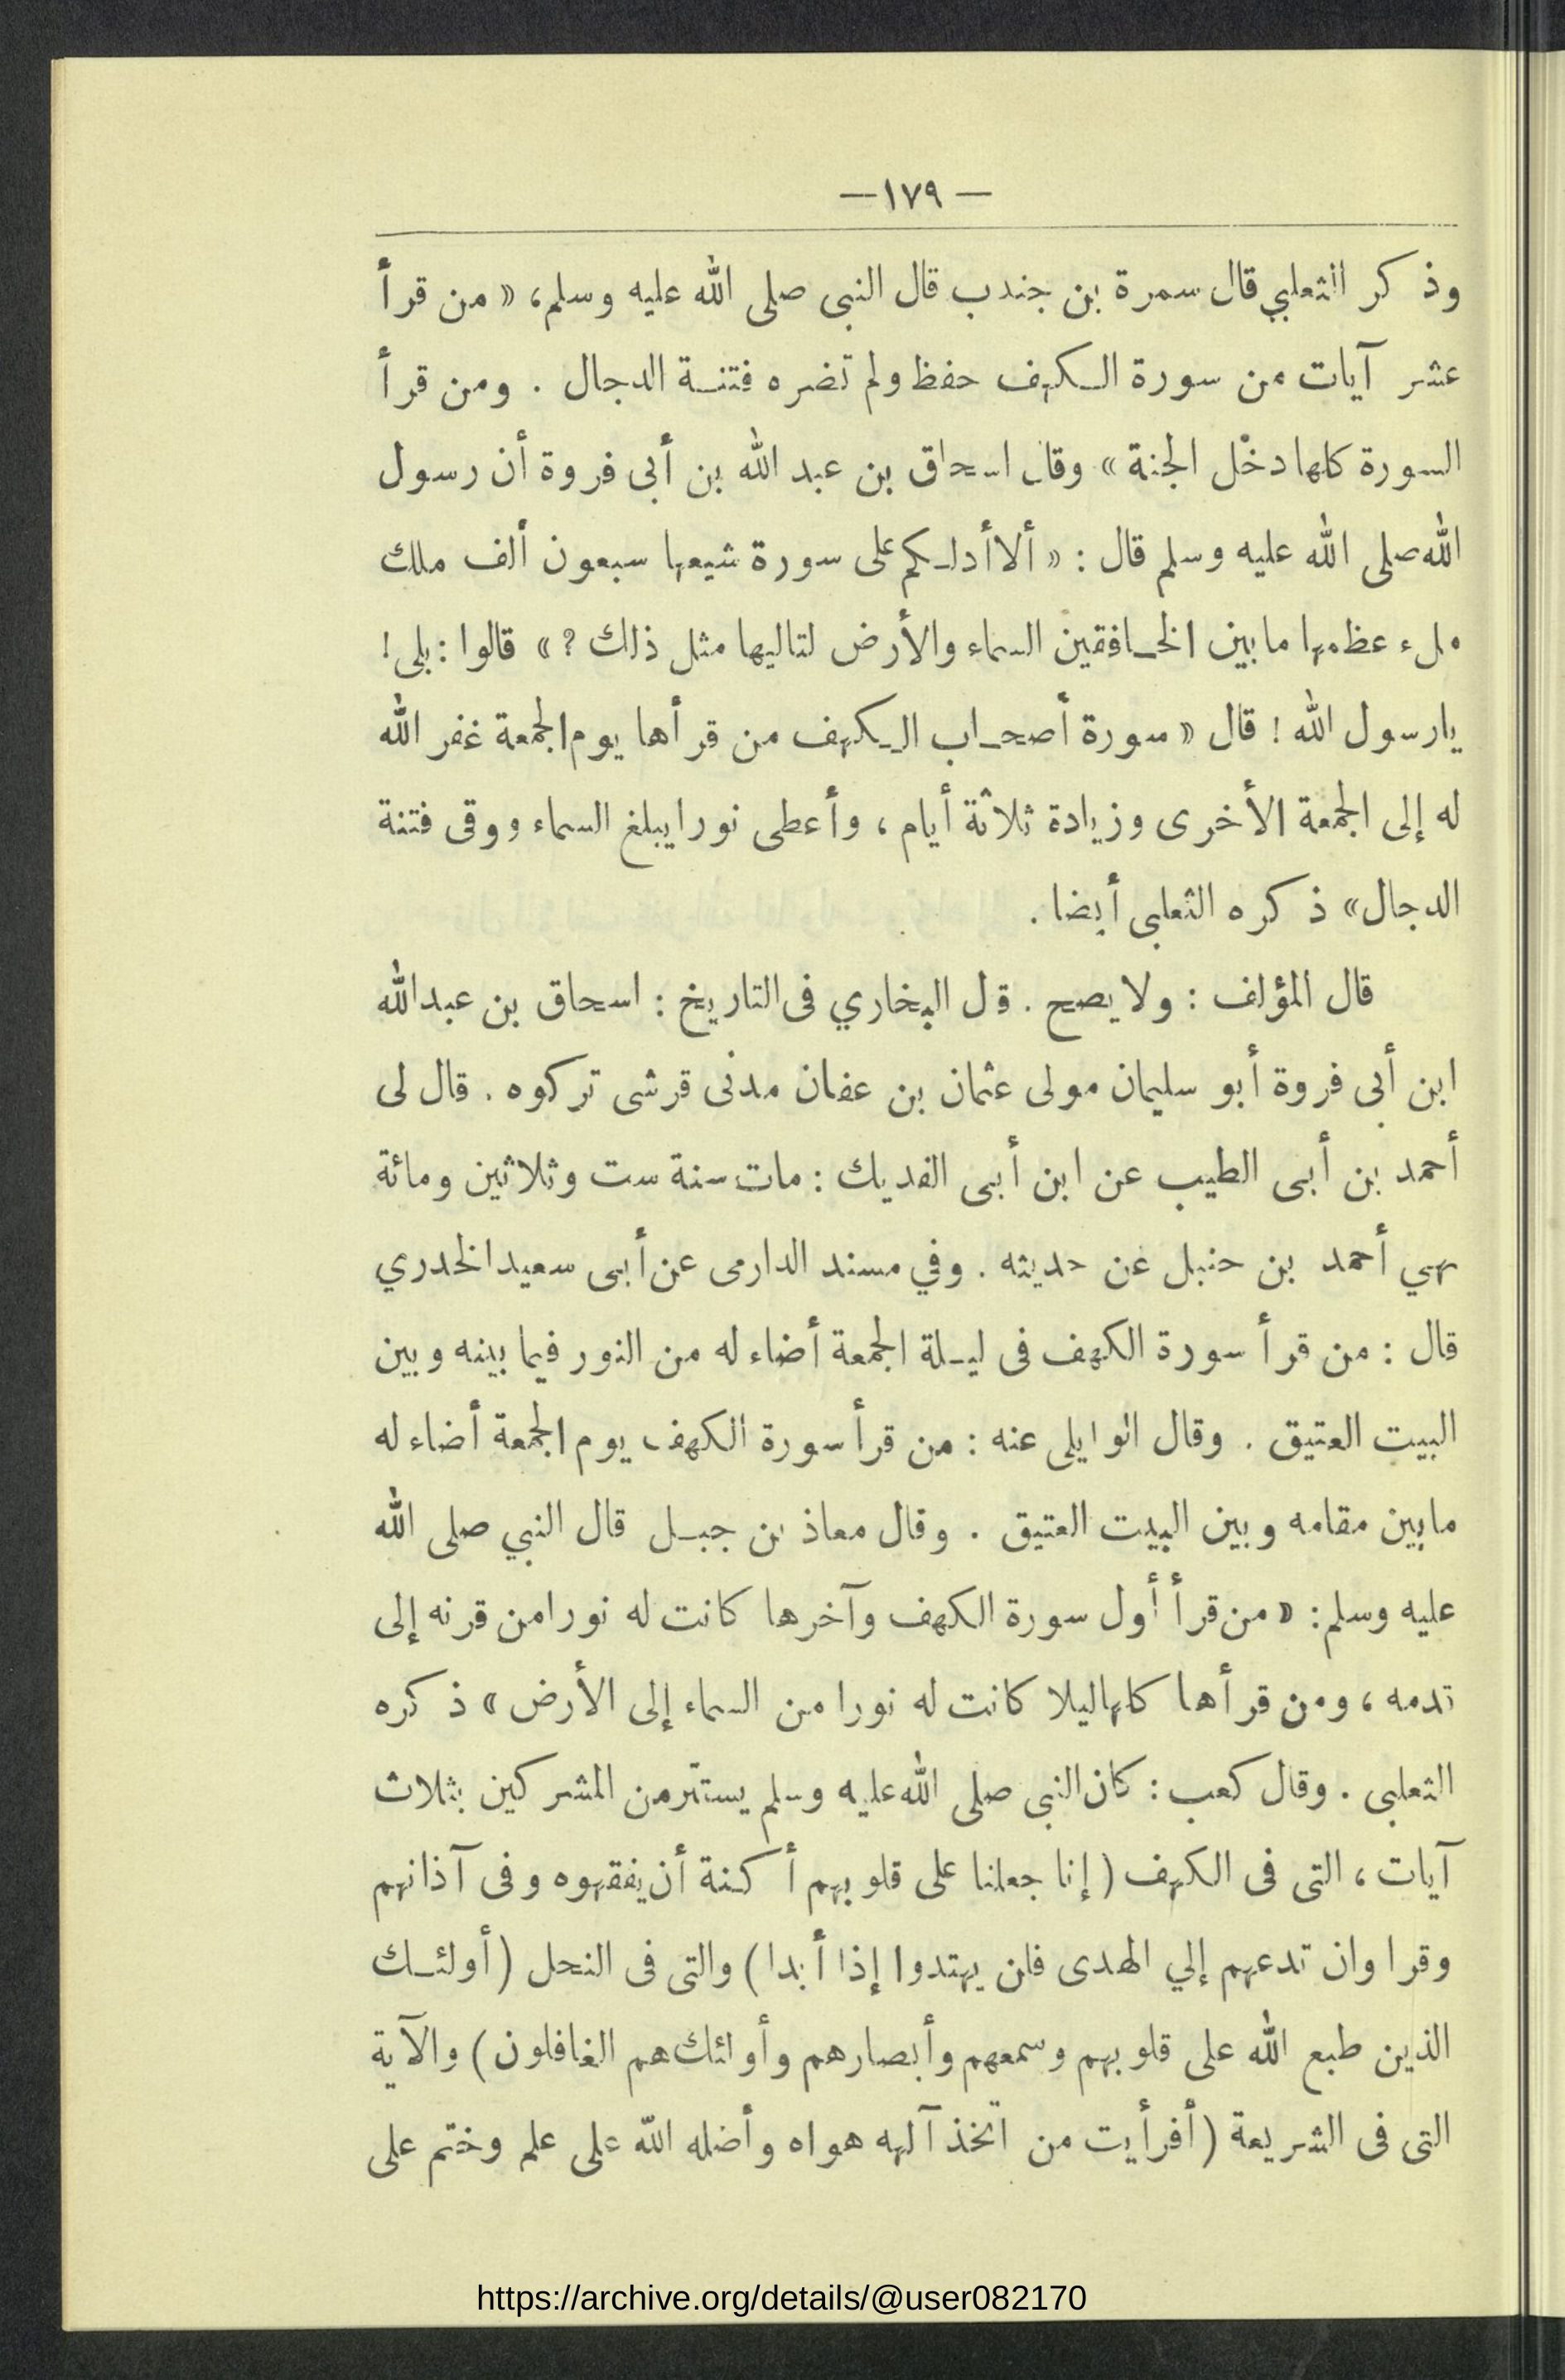 — ١٧٩ —
وذكر الثعلبي قال سمرة بن جندب قال النبى صلى الله عليه وسلم، « من قرأ
عشر آيات من سورة الكهف حفظ ولم تضره فتنة الدجال . ومن قرأ
السورة كلها دخل الجنة » وقال اسحاق بن عبد الله بن أبى فروة أن رسول
الله صلى الله عليه وسلم قال : « ألا أدلكم على سورة شيعها سبعون ألف ملك
ملء عظمها ما بين الخافقين السماء والأرض لتاليها مثل ذلك ? » قالوا : بلى !
يارسول الله ! قال « سورة أصحاب الكهف من قرأها يوم الجمعة غفر الله
له إلى الجمعة الأخرى وزيادة ثلاثة أيام ، وأعطى نورا يبلغ السماء ووقى فتنة
الدجال » ذكره الثعلبى أيضا .
قال المؤلف : ولا يصح . قل البخاري فى التاريخ : اسحاق بن عبدالله
ابن أبى فروة أبو سليمان مولى عثمان بن عفان مدنى قرشى تركوه . قال لى
أحمد بن أبى الطيب عن ابن أبى الفديك : مات سنة ست وثلاثين ومائة
نهي أحمد بن حنبل عن حديثه . وفي مسند الدارمى عن أبى سعيد الخدري
قال : من قرأ سورة الكهف فى ليلة الجمعة أضاء له من النور فيما بينه وبين
البيت العتيق . وقال الوايلى عنه : من قرأ سورة الكهف يوم الجمعة أضاء له
مابين مقامه وبين البيت العتيق . وقال معاذ بن جبل قال النبي صلى الله
عليه وسلم : « من قرأ أول سورة الكهف وآخرها كانت له نورا من قرنه إلى
قدمه ، ومن قرأها كلها ليلا كانت له نورا من السماء إلى الأرض » ذكره
الثعلبى . وقال كعب : كان النبى صلى الله عليه وسلم يستتر من المشركين بثلاث
آيات ، التى فى الكهف ( إنا جعلنا على قلوبهم أكنة أن يفقهوه وفى آذانهم
وقرا وان تدعهم إلي الهدى فلن يهتدوا إذا أبدا ) والتى فى النحل ( أولئك
الذين طبع الله على قلوبهم وسمعهم وأبصارهم وأولئك هم الغافلون ) والآية
التى فى الشريعة ( أفرأيت من اتخذ آلهه هواه وأضله الله على علم وختم على
https://archive.org/details/@user082170